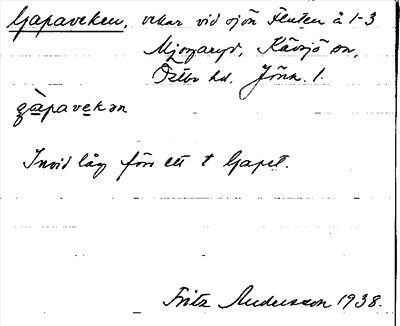 Gapaveken, vekar vid sjön Fenten å 1-3
Mjogaryd, Kävsjö sn,
Östbo hd. Jönk. l.
gàpavekən
Invid låg förr ett t Gapet.
Fritz Andersson 1938.